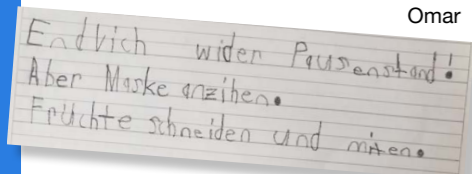 Omar
Endlich wider Pausenstand!
Aber Maske anzihen.
Früchte schneiden und